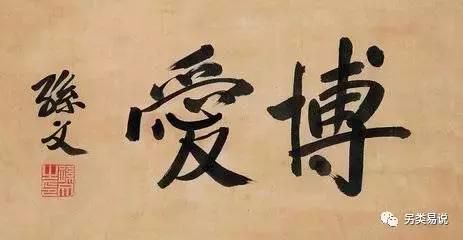 博愛
孫文
另类易说